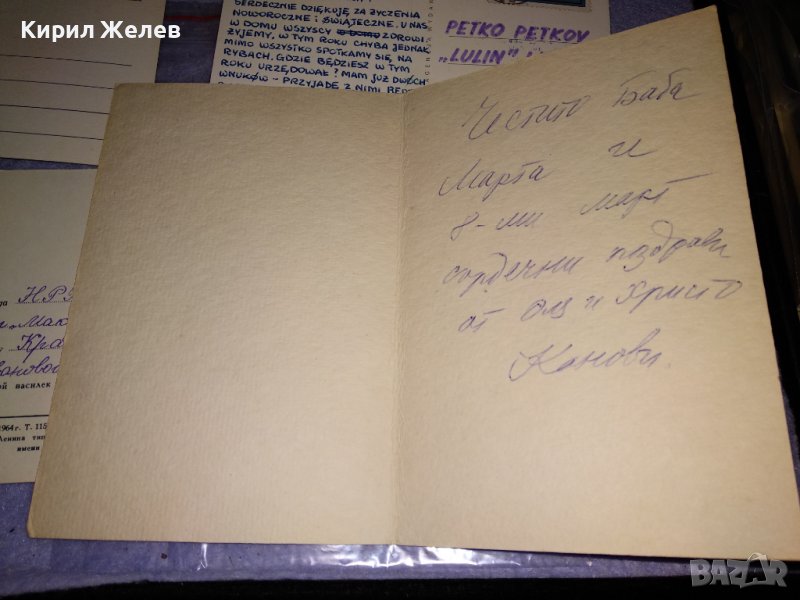 Кирил Желев
SERDECZNIE DZIĘKUJĘ ZA ŻYCZENIA
NOWOROCZNE I ŚWIĄTECZNE. U NAS
W DOMU WSZYSCY ZDROWI
ŻYJEMY, W TYM ROKU CHYBA JEDNAK
MIMO WSZYSTKO SPOTKAMY SIĘ, NA
RYBACH. GDZIE BĘDZIESZ W TYM
ROKU URZĘDOWAŁ? MAM JUŻ DWÓCH
WNUKÓW - PRZYJADĘ Z NIMI
PETKO PETKOV
„LULIN"
Честито Баба
Марта и
8-ми март
сърдечни поздрави
от Оля и Христо
Конови.
НРБ
Мак
Кра
ой василек
1964 г. Т. 115
Ленина тип
имени
BAZAR